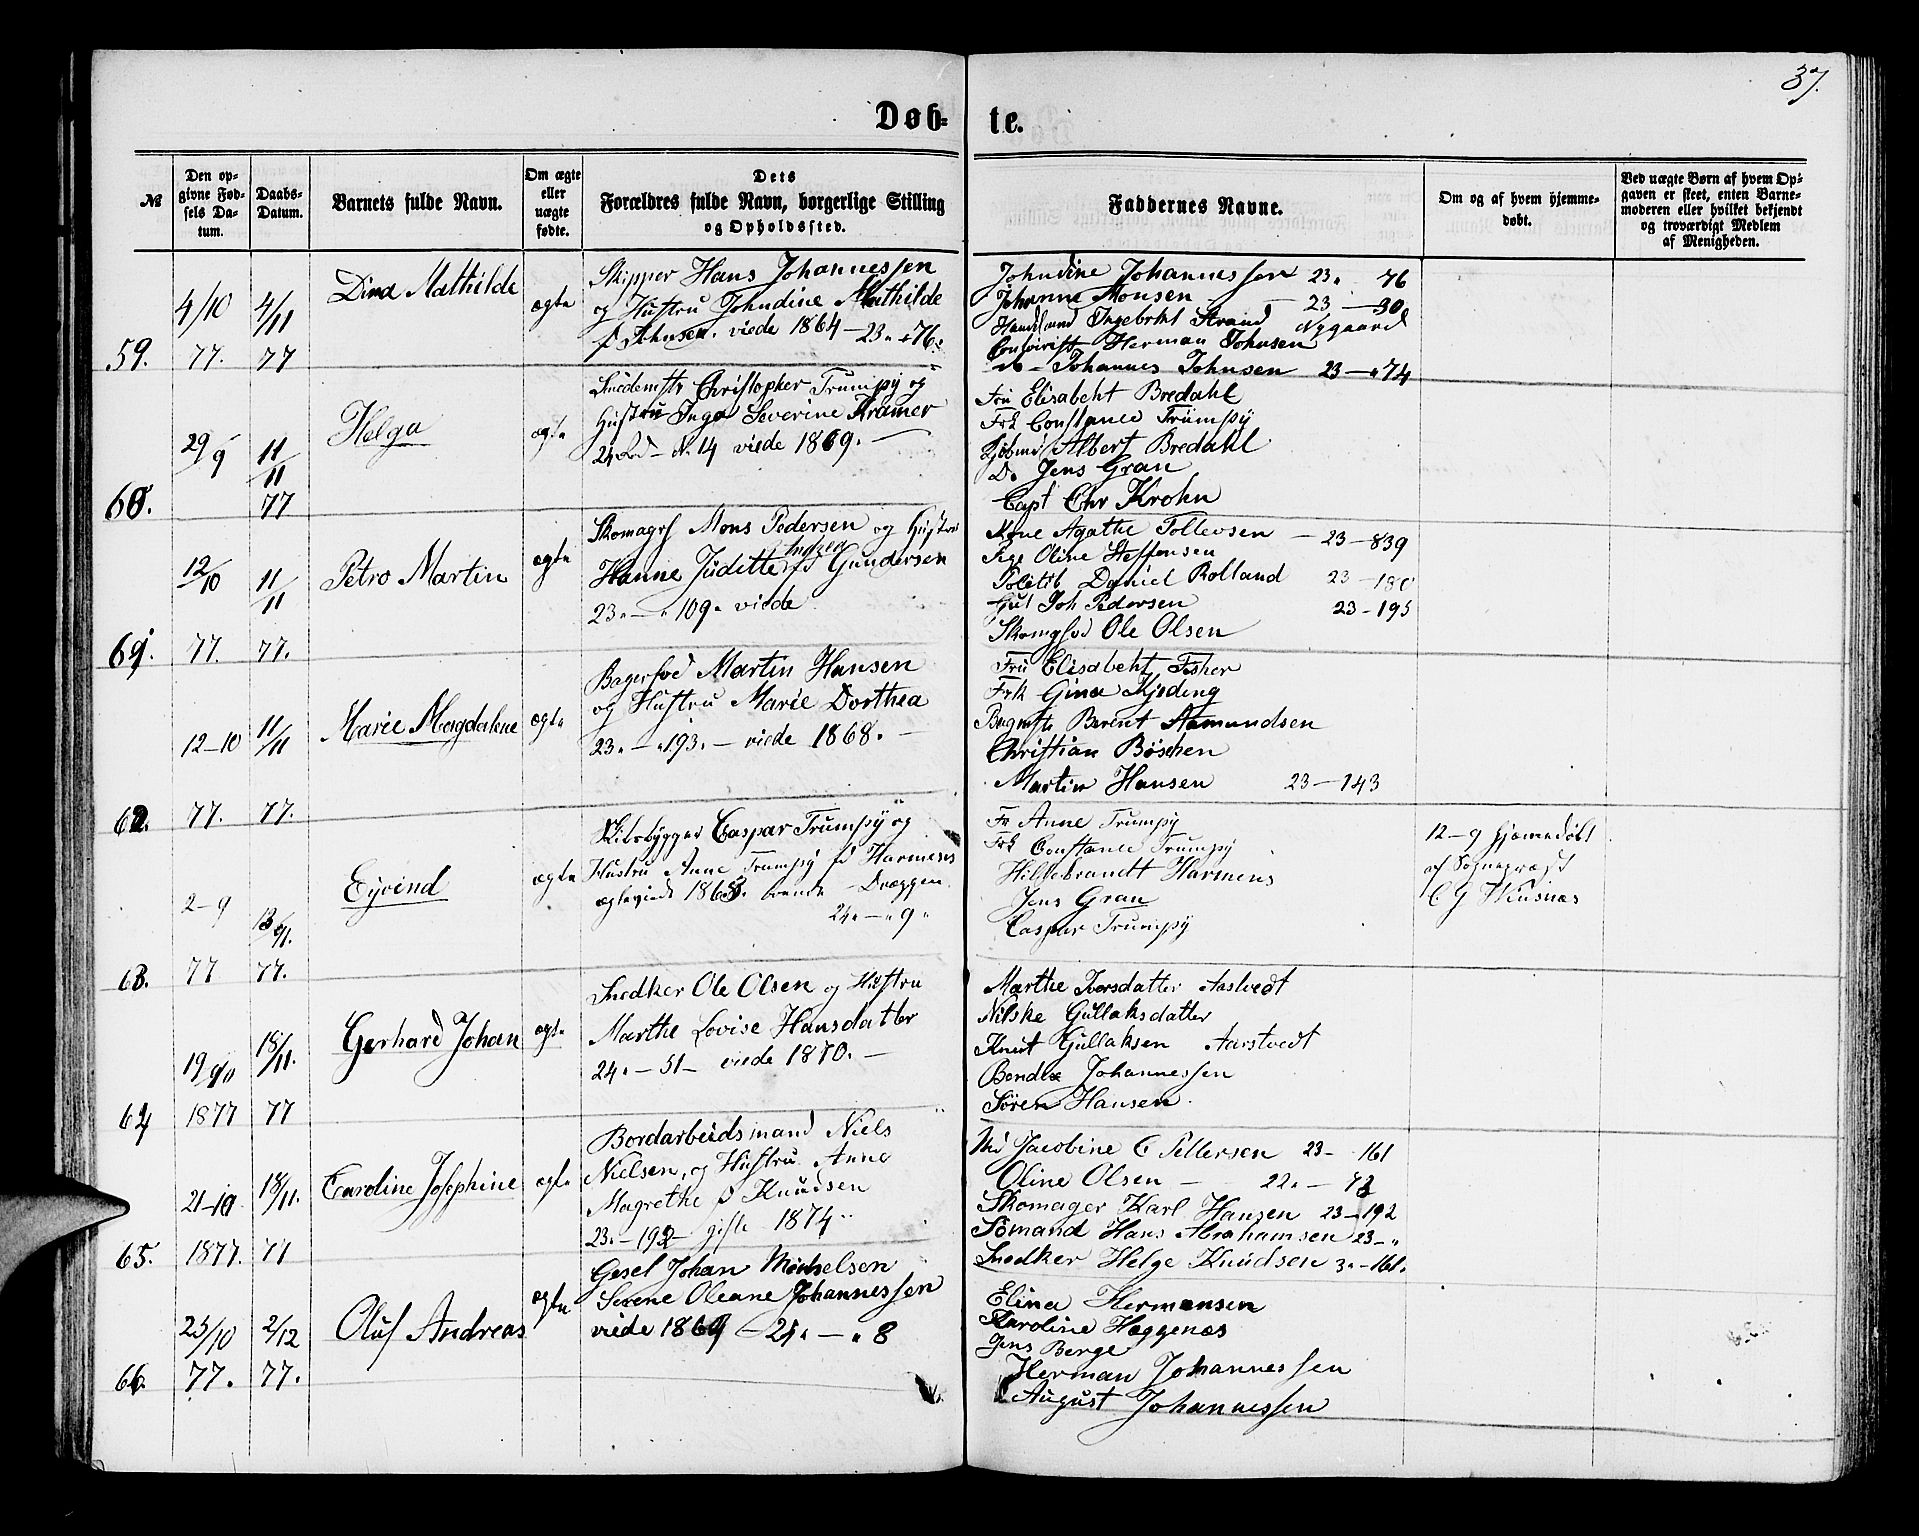 37.
Døb-
te.
№
Den op-
givne Fød-
sels Da-
tum.
Daabs-
Datum.
Barnets fulde Navn.
Om ægte
eller
uægte
fødte.
Dets
Forældres fulde Navn, borgerlige Stilling
og Opholdssted.
Faddernes Navne.
Om og af hvem hjemme-
døbt.
Ved uægte Børn af hvem Op-
gaven er skeet, enten Barne-
moderen eller hvilket bekjendt
og troværdigt Medlem
af Menigheden.
59.
4/10
77.
4/11
77
Dina Mathilde
ægte
Skipper Hans Johannessen
og Hustru Johndine Mathilde
f Johnsen. viede 1864 - 23. 76.
Johndine Johannessen 23. 76
Johanne Monsen - 23 - 30
Ingebrkt Strand Nygaard
Herman Johnsen
do - Johannes Johnsen 23 - 74
60.
29/9
11/11
77
Helga
ægte
Christopher Trumpy og
Hustru Inga Severine Kramer
24 Rd - N. 14 viede 1869.
Fru Elisabeht Bredahl
Frk Constance Trumpy
Albert Bredahl
Do Jens Gran
Capt Chr Krohn
61.
12/10
77.
11/11
77.
Petro Martin
ægte
Skomagrs Mons Pedersen og Hustru
Hanne Juditte Andrea fd Gundersen
23. - 109. viede
Kone Agathe Tollevsen - 23 - 839
Pige Oline Steffensen
Politib Daniel Rolland 23 - 180
Joh Pedersen 23 - 195
Skomgsvd Ole Olsen
62.
12-10
77.
11/11
77.
Marie Magdalene
ægte
Bagersvd Martin Hansen
og Hustru Marie Dorthea
23. - 193. - viede 1868.
Fru Elisabeht Fisher
Frk Gina Kjeding
Bagmstr Berent Aamundsen
Christian Böschen
Martin Hansen 23 - 143
63.
2-9
77
18/11.
77.
Eyvind
ægte
Skibsbygger Caspar Trumpy og
Hustru Anne Trumpy fd Harmens
Dræggen.
24. - 9
Fr Anne Trumpy
Frk Constance Trumpy
Hildebrandt Harmens
Jens Gran
Caspar Trumpy
12-9 hjemedöbt
af Sognepræst
64
19/10
1877
18/11.
77
Gerhard Johan
ægte
Snedker Ole Olsen og Hustru
Marthe Lovise Hansdatter
24. - 51 - viede 1870.
Marthe Iversdatter Aastvedt
Nilske Gullaksdatter
Knut Gullaksen Aarstvedt
Johannessen
Sören Hansen
65.
21-10
1877.
18/11.
77
Caroline Josephine
ægte
Bordarbeidsmand Niels
Nielsen, og Hustru Anne
Magrethe f Knudsen
23. - 192 - gifte 1874
Md Jacobine C Pettersen 23 - 161
Oline Olsen - 22. - 72
Skomager Karl Hansen 23 - 192
Sömand Hans Abrahamsen 23 -
Snedker Helge Knudsen 3. - 161.
66.
25/10
77.
2/12
77.
Oluf Andreas
ægte
Gesel Johan Michelsen
Serene Oleane Johannessen
viede 1869 - 24. - 8
Elina Hermansen
Karoline Haggenæs
Jens Berge
Herman Johannessen
August Johannessen